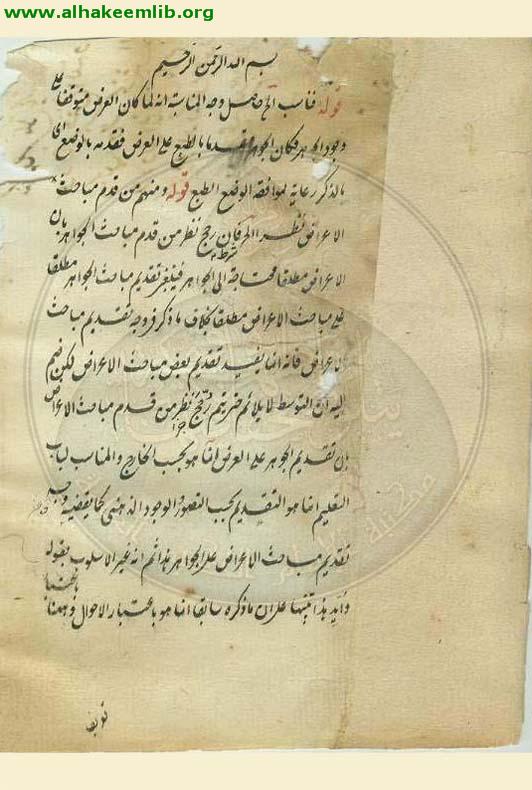 www.alhakeemlib.org
بسم الله الرحمن الرحيم
قوله فناسب الخ حاصل وجه المناسبة انه لما كان العرض متوقفا على
وجود الجوهر فكان الجوهر مقدما بالطبع على العرض فقدمه بالوضع اى
بالذكر رعاية لموافقة الوضع الطبع قوله ومنهم من قدم مباحث
الاعراض نظرا الخ فان رجح نظر من قدم مباحث الجواهر بان
الاعراض مطلقا محتاجة الى الجواهر فينبغى تقديم مباحث الجواهر مطلقا
على مباحث الاعراض مطلقا بخلاف ما ذكر فى وجه تقديم مباحث
الاعراض فانه انما يفيد تقديم بعض مباحث الاعراض لكن ضم
اليه ان التوسط لا يلائم رجح نظر من قدم مباحث الاعراض
بان تقديم الجوهر على العرض انما هو بحسب الخارج والمناسب لباب
التعليم انما هو التقديم بحسب التصور والوجود الذهنى كما يقتضيه وجه
تقديم مباحث الاعراض على الجواهر هذا ثم انه غير الاسلوب بقوله
وايد هذا تنبيها على ان ما ذكره سابقا انما هو باعتبار الاحوال وههنا باعتبار